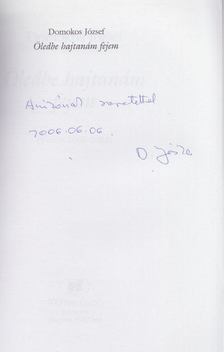 Domokos József
Öledbe hajtanám fejem
szeretettel
2006.06.06.
D. Jóska